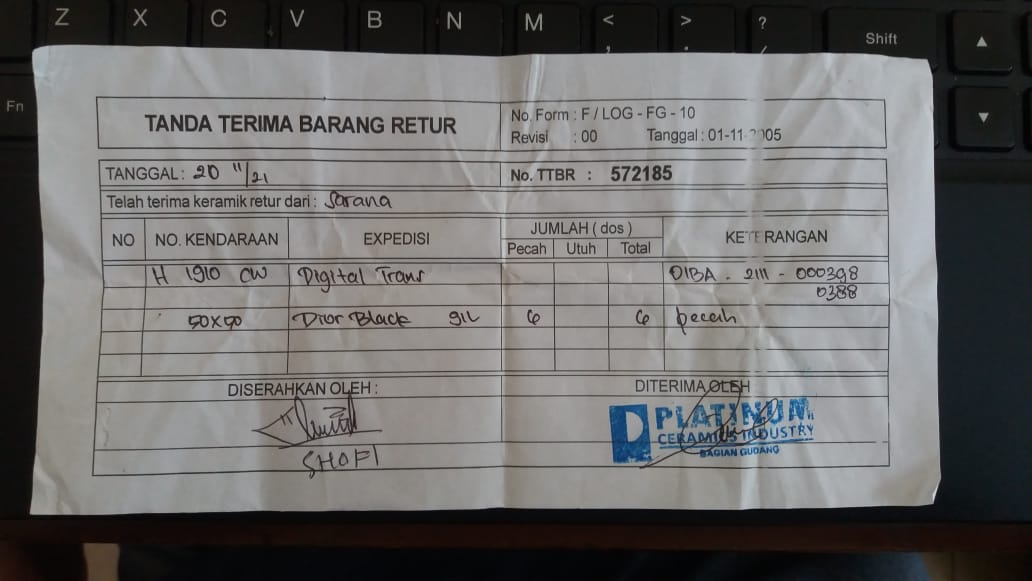 Z X C V B N M < , > . ? /
Shift ▲
Fn ▼
TANDA TERIMA BARANG RETUR
No. Form : F / LOG - FG - 10
Revisi : 00 Tanggal : 01-11-2005
TANGGAL : 20 11/21
No. TTBR : 572185
Telah terima keramik retur dari : Sarana
NO NO. KENDARAAN EXPEDISI JUMLAH ( dos ) KETERANGAN
Pecah Utuh Total
H 1910 CW Digital Trans DIBA - 2111 - 000398
0388
50x50 Dior Black 91L 6 6 pecah
DISERAHKAN OLEH : DITERIMA OLEH
PLATINUM
CERAMICS INDUSTRY
BAGIAN GUDANG
SHOFI